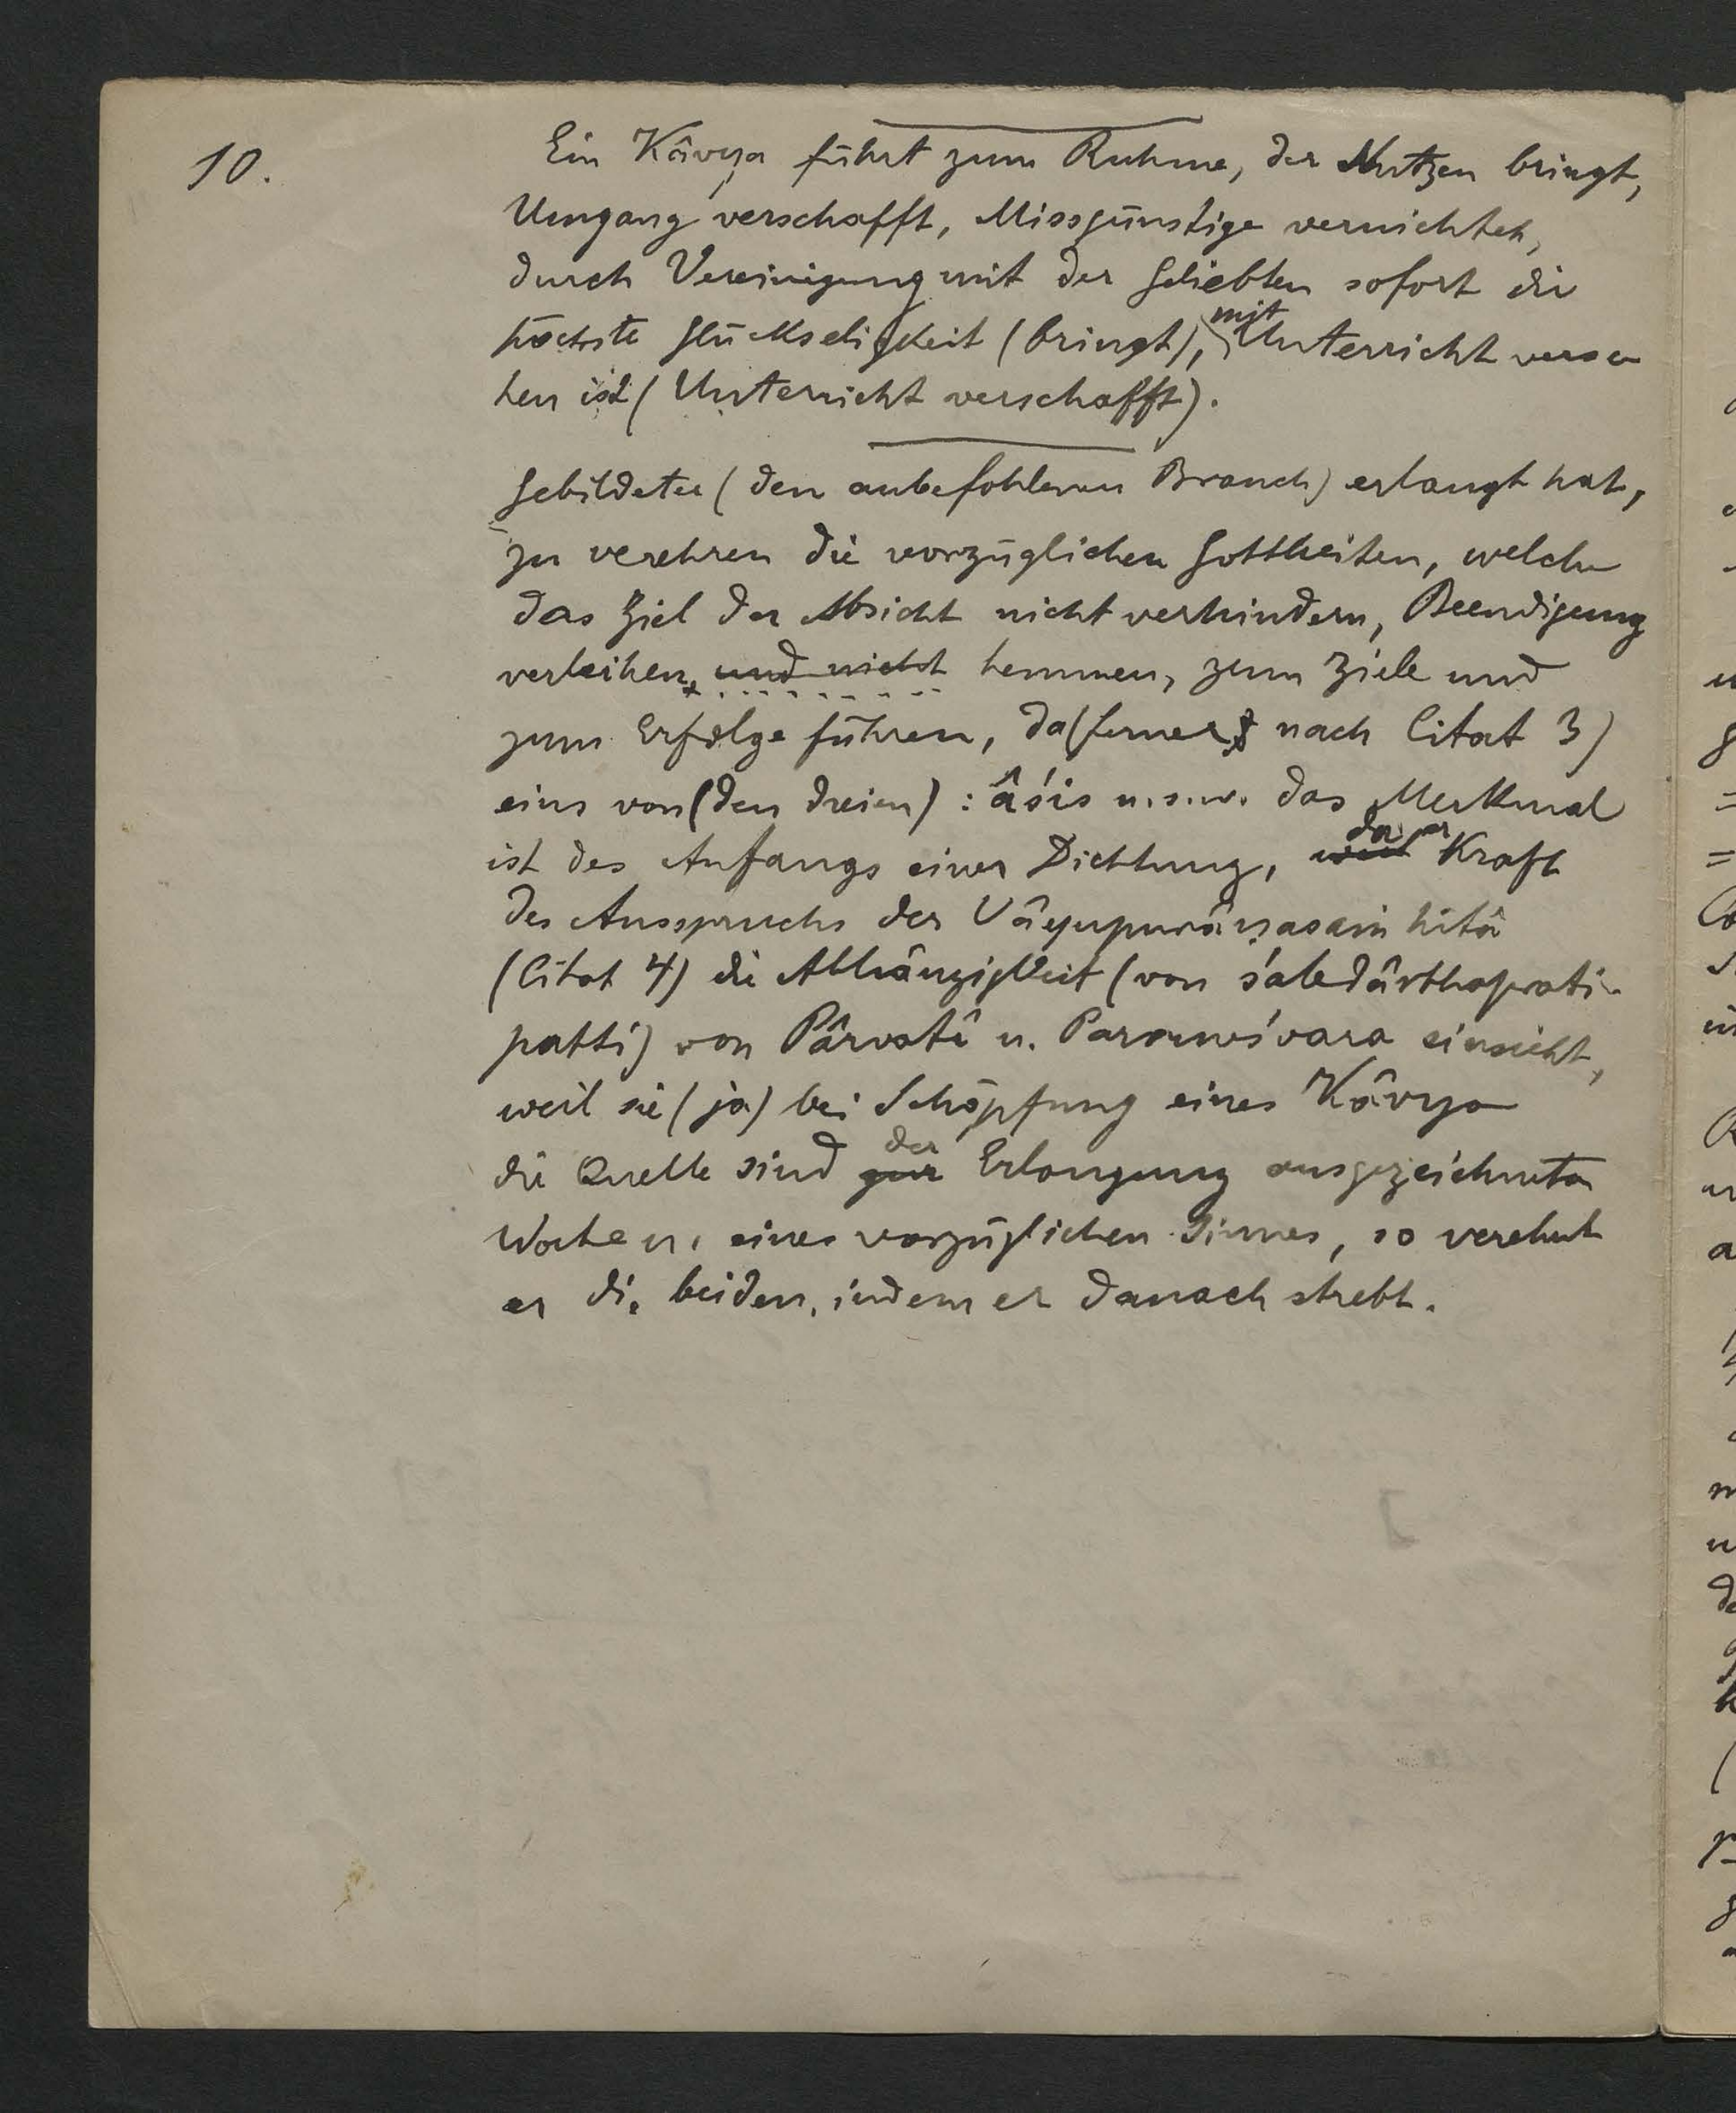 10.
Ein Kâvya führt zum Ruhme, der Nutzen bringt,
Umgang verschafft, Missgünstige vernichtet,
durch Vereinigung mit der Geliebten sofort die
höchste Glückseligkeit (bringt), mit Unterricht verse
hen ist (Unterricht verschafft).
Gebildeter (den anbefohlenen Brauch) erlangt hat,
zu verehren die vorzüglichen Gottheiten, welche
das Ziel der Absicht nicht verhindern, Beendigung
verleihen, und nicht hemmen, zum Ziele und
zum Erfolge führen, da (ferner nach Citat 3)
eins von (den dreien) : âśis u.s.w. das Merkmal
ist des Anfangs einer Dichtung, weil da er Kraft
des Ausspruchs der Vâyupurâṇasaṁhitâ
(Citat 4) die Abhängigkeit (von śabdârthaprati-
patti) von Pârvatî u. Parameśvara einsieht,
weil sie (ja) bei Schöpfung eines Kâvya
die Quelle sind zur der Erlangung ausgezeichneter
Worte u. eines vorzüglichen Sinnes, so verehrt
er die beiden, indem er danach strebt.